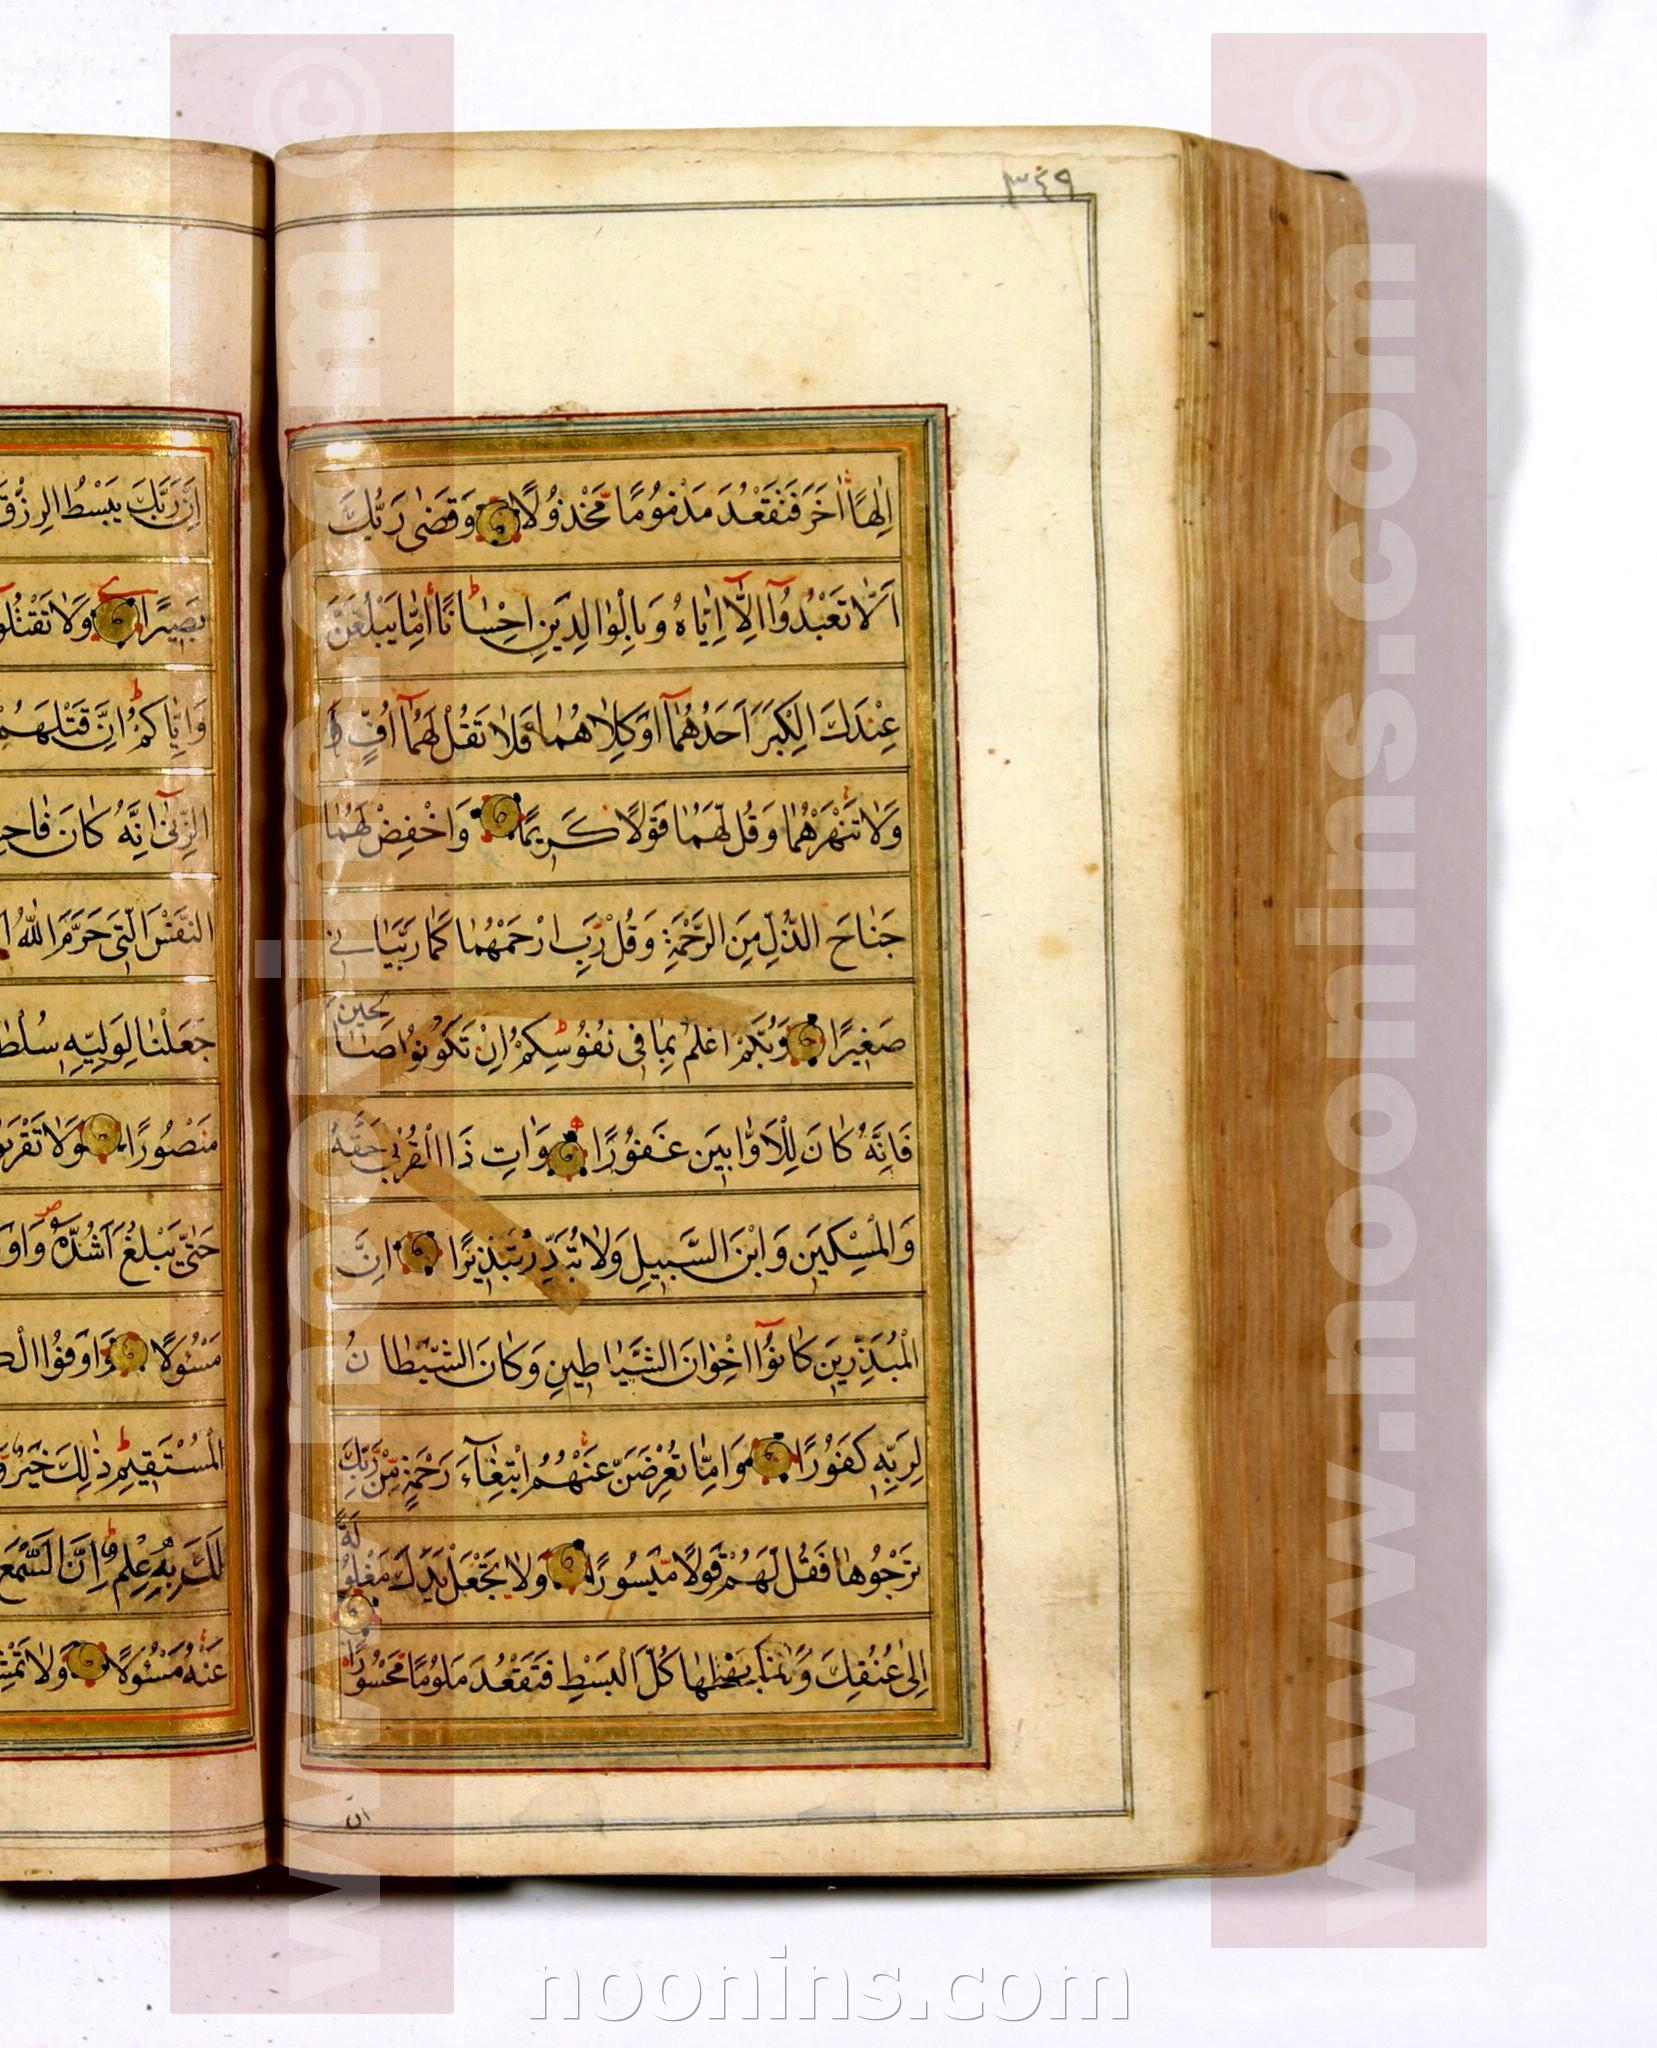 ٣٤٩
اِلٰهًا اٰخَرَ فَتَقْعُدَ مَذْمُومًا مَخْذُولًا وَقَضٰى رَبُّكَ
اَلَّا تَعْبُدُوٓا اِلَّٓا اِيَّاهُ وَبِالْوَالِدَيْنِ اِحْسَانًا اِمَّا يَبْلُغَنَّ
عِنْدَكَ الْكِبَرَ اَحَدُهُمَٓا اَوْ كِلَاهُمَا فَلَا تَقُلْ لَهُمَٓا اُفٍّ وَ
وَلَا تَنْهَرْهُمَا وَقُلْ لَهُمَا قَوْلًا كَرِيمًا وَاخْفِضْ لَهُمَا
جَنَاحَ الذُّلِّ مِنَ الرَّحْمَةِ وَقُلْ رَبِّ ارْحَمْهُمَا كَمَا رَبَّيَانِي
صَغِيرًا رَبُّكُمْ اَعْلَمُ بِمَا فِي نُفُوسِكُمْ اِنْ تَكُونُوا صَالِحِينَ
فَاِنَّهُ كَانَ لِلْاَوَّابِينَ غَفُورًا وَاٰتِ ذَا الْقُرْبٰى حَقَّهُ
وَالْمِسْكِينَ وَابْنَ السَّبِيلِ وَلَا تُبَذِّرْ تَبْذِيرًا اِنَّ
الْمُبَذِّرِينَ كَانُوٓا اِخْوَانَ الشَّيَاطِينِ وَكَانَ الشَّيْطَانُ
لِرَبِّهِ كَفُورًا وَاِمَّا تُعْرِضَنَّ عَنْهُمُ ابْتِغَٓاءَ رَحْمَةٍ مِنْ رَبِّكَ
تَرْجُوهَا فَقُلْ لَهُمْ قَوْلًا مَيْسُورًا وَلَا تَجْعَلْ يَدَكَ مَغْلُولَةً
اِلٰى عُنُقِكَ وَلَا تَبْسُطْهَا كُلَّ الْبَسْطِ فَتَقْعُدَ مَلُومًا مَحْسُورًا
ان
اِنَّ رَبَّكَ يَبْسُطُ الرِّزْقَ
بَصِيرًا وَلَا تَقْتُلُوٓا
وَاِيَّاكُمْ اِنَّ قَتْلَهُمْ
الزِّنٰٓى اِنَّهُ كَانَ فَاحِ
النَّفْسَ الَّتِي حَرَّمَ اللّٰهُ
جَعَلْنَا لِوَلِيِّهِ سُلْطَا
مَنْصُورًا وَلَا تَقْرَبُو
حَتّٰى يَبْلُغَ اَشُدَّهُ وَاَو
مَسْئُولًا وَاَوْفُوا الْك
الْمُسْتَقِيمِ ذٰلِكَ خَيْرٌ وَ
لَكَ بِهِ عِلْمٌ اِنَّ السَّمْعَ
عَنْهُ مَسْئُولًا وَلَا تَمْشِ
www.noonins.com ©
www.noonins.com ©
noonins.com